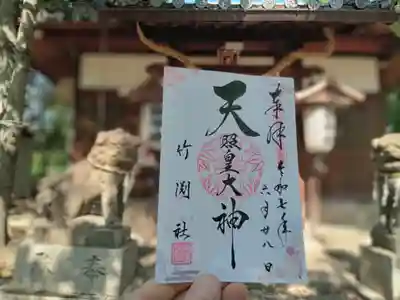 奉拝 令和七年
六月廿八日
天照皇大神
竹渕社
奉